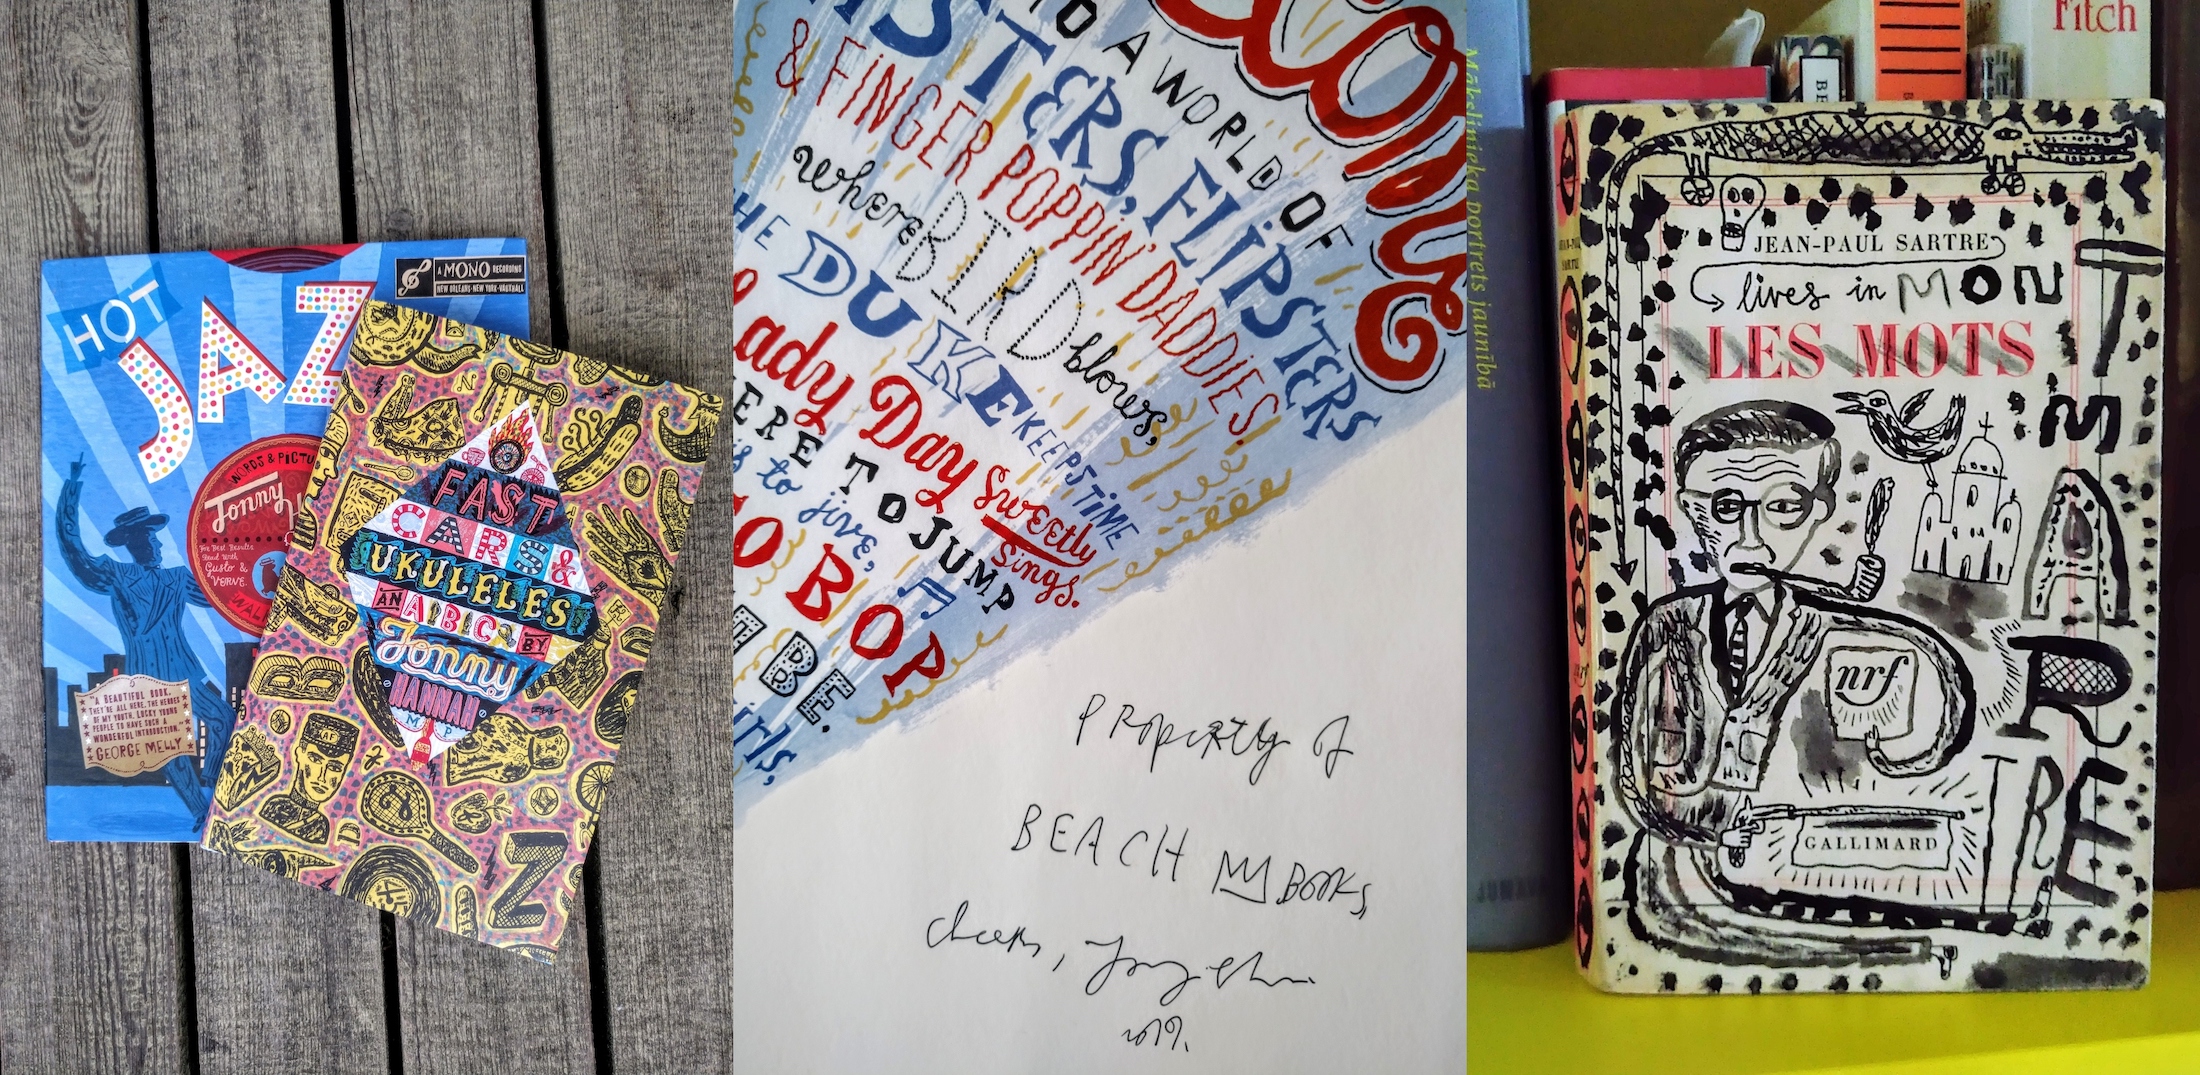 HOT
JAZ
A MONO RECORDING
NEW ORLEANS-NEW YORK-VAUXHALL
WORDS & PICTU
Jonny H
For Best Results
Read With
Gusto &
VERVE.
"A BEAUTIFUL BOOK.
THEY'RE ALL HERE, THE HEROES
OF MY YOUTH. LUCKY YOUNG
PEOPLE TO HAVE SUCH A
WONDERFUL INTRODUCTION."
GEORGE MELLY
FAST
CARS &
UKULELES
AN ABC BY
Jonny
HANNAH
M P
RAF
B
Z
TO A WORLD OF
STERS, FLiPSTERS
& FiNGER POPPIN' DADDIES.
where BIRD blows,
HE DUKE KEEPS TIME
ady Day SWEEtly
Sings.
ERE TO JUMP
is to jive,
O BOP
BE.
irls,
PRopERty of
BEACH BOOKS,
cheers,
2019.
Mākslinieka portrets jaunībā
Fitch
JEAN-PAUL SARTRE
lives in MONT
LES MOTS
MARTRE
nrf
GALLIMARD